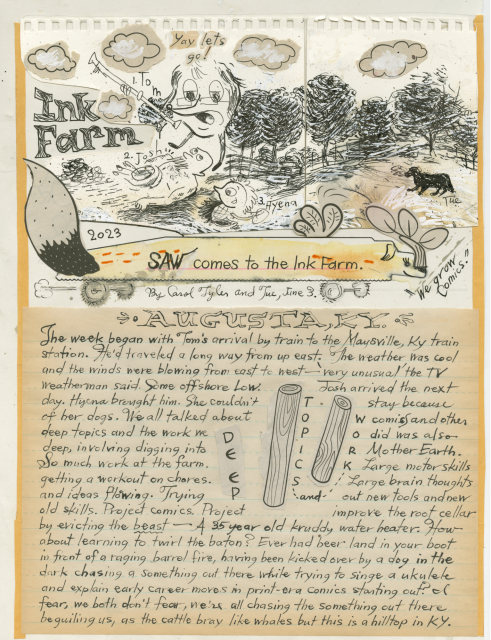 Yay let's go!
1. Tom
Ink
Farm
2. Josh
3. Hyena
Tue
2023
SAW comes to the Ink Farm.
By Carol Tyler and Tue, June 3.
We grow Comics.
AUGUSTA, KY.
The week began with Tom's arrival by train to the Maysville, Ky train
station. He'd traveled a long way from up east. The weather was cool
and the winds were blowing from east to west — very unusual the TV
weatherman said. Some offshore Low. Josh arrived the next
day. Hyena brought him. She couldn't stay because
of her dogs. We all talked about comics and other
deep topics and the work we did was also
deep, involving digging into Mother Earth.
So much work at the farm. Large motor skills
getting a workout on chores. Large brain thoughts
and ideas flowing. Trying out new tools and new
old skills. Project comics. Project improve the root cellar
DEEP
TOPICS
and
WORK
by evicting the beast — A 35 year old kruddy water heater. How
about learning to twirl the baton? Ever had beer land in your boot
in front of a raging barrel fire, having been kicked over by a dog in the
dark chasing a something out there while trying to singe a ukulele
and explain early career moves in print-era comics starting out? Of
fear, we both don't fear, we're all chasing the something out there
beguiling us, as the cattle bray like whales but this is a hilltop in KY.